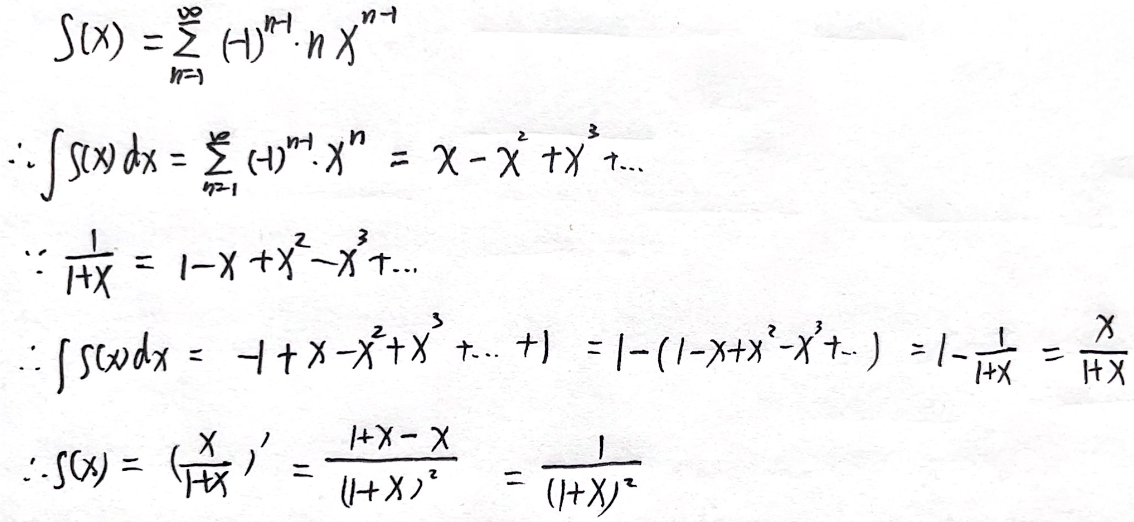 S(x) = ∑_{n=1}^{∞} (-1)^{n-1}·n x^{n-1}
∴ ∫S(x)dx = ∑_{n=1}^{∞} (-1)^{n-1}·x^n = x - x² + x³ + ...
∵ 1/(1+x) = 1 - x + x² - x³ + ...
∴ ∫S(x)dx = -1 + x - x² + x³ + ... + 1 = 1 - (1 - x + x² - x³ + ...) = 1 - 1/(1+x) = x/(1+x)
∴ S(x) = (x/(1+x))' = (1+x-x)/(1+x)² = 1/(1+x)²